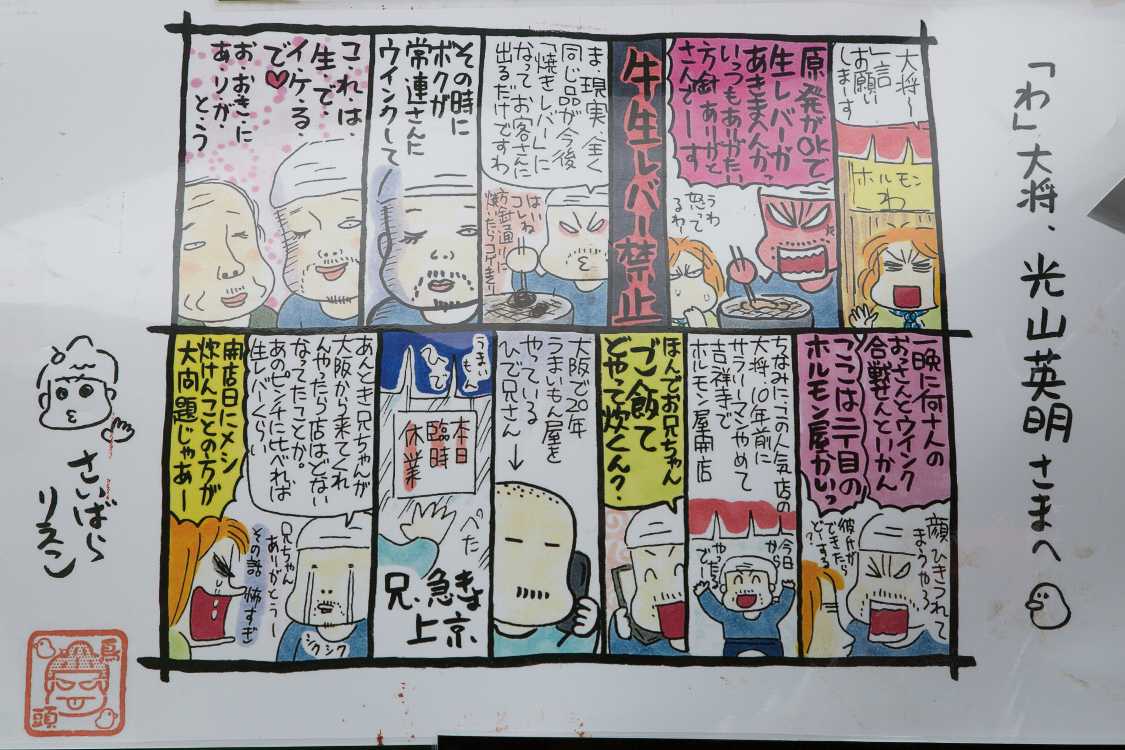 「わ」大将、光山英明さまへ
大将〜
一言
お願い
しまーす
ホルモン
わ
原発がOKで
生レバーが
あきまへんかっ
いっつもありがたい
方針ありがと
さんでーーす
うわ
怒って
るわ
牛生レバー禁止
ま、現実、全く
同じ品が今後
「焼きレバー」に
なってお客さんに
出るだけですわ
はいね
コレね
方針通りに
焼いたらコゲまーす
その時に
ボクが
常連さんに
ウインクして
これは、
生で、
イケる、
で♥
お、おきに
あ、りが、
とう
一晩に何十人の
おっさんとウインク
合戦せんといかん
ここは二丁目の
ホルモン屋かいっ
顔ひきつって
まうやろ
彼氏が
できたら
どーする
ど?
ちなみにこの人気店の
大将、10年前に
サラリーマンやめて
吉祥寺で
ホルモン屋開店
今日
から
やったる
でー
ほんでお兄ちゃん
ご飯て
どやって炊くん?
大阪で20年
うまいもん屋を
やっている
ひで兄さん
↓
うまいもん
ひで
本日
臨時
休業
ぺた
兄、急きょ
上京
あんとき兄ちゃんが
大阪から来てくれ
んやったら店はどない
なってたことか。
あのピンチにけべれば
生レバーくらい
兄ちゃん
ありがとうー
シクシク
開店日にメシ
炊けんことの方が
大問題じゃあー
その話
怖すぎ
さいばら
りえこ
鳥
頭